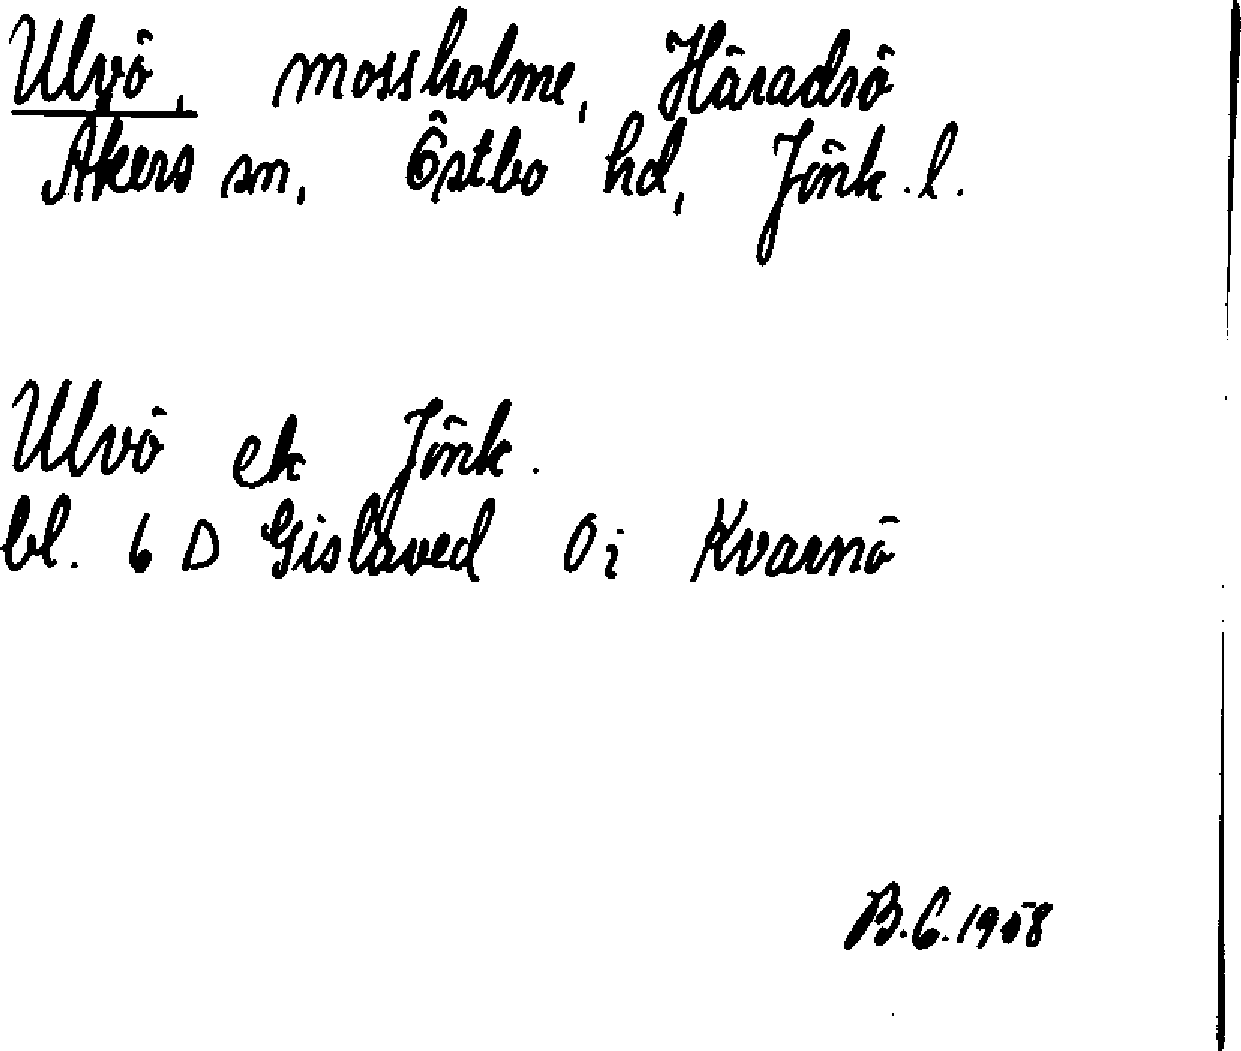 Ulvö, mossholme, Häradsö
Åkers sn, Östbo hd, Jönk. l.
Ulvö ek Jönk.
bl. 6 D Gislaved 0 i Kvarnö
B. G. 1958